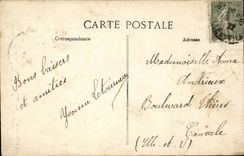 CARTE POSTALE
Correspondance
Adresse
Bons baisers
et amitiés
Yvonne
Mademoiselle Anna
Andrieux
Boulevard Thiers
Cancale
(Ille et V.)